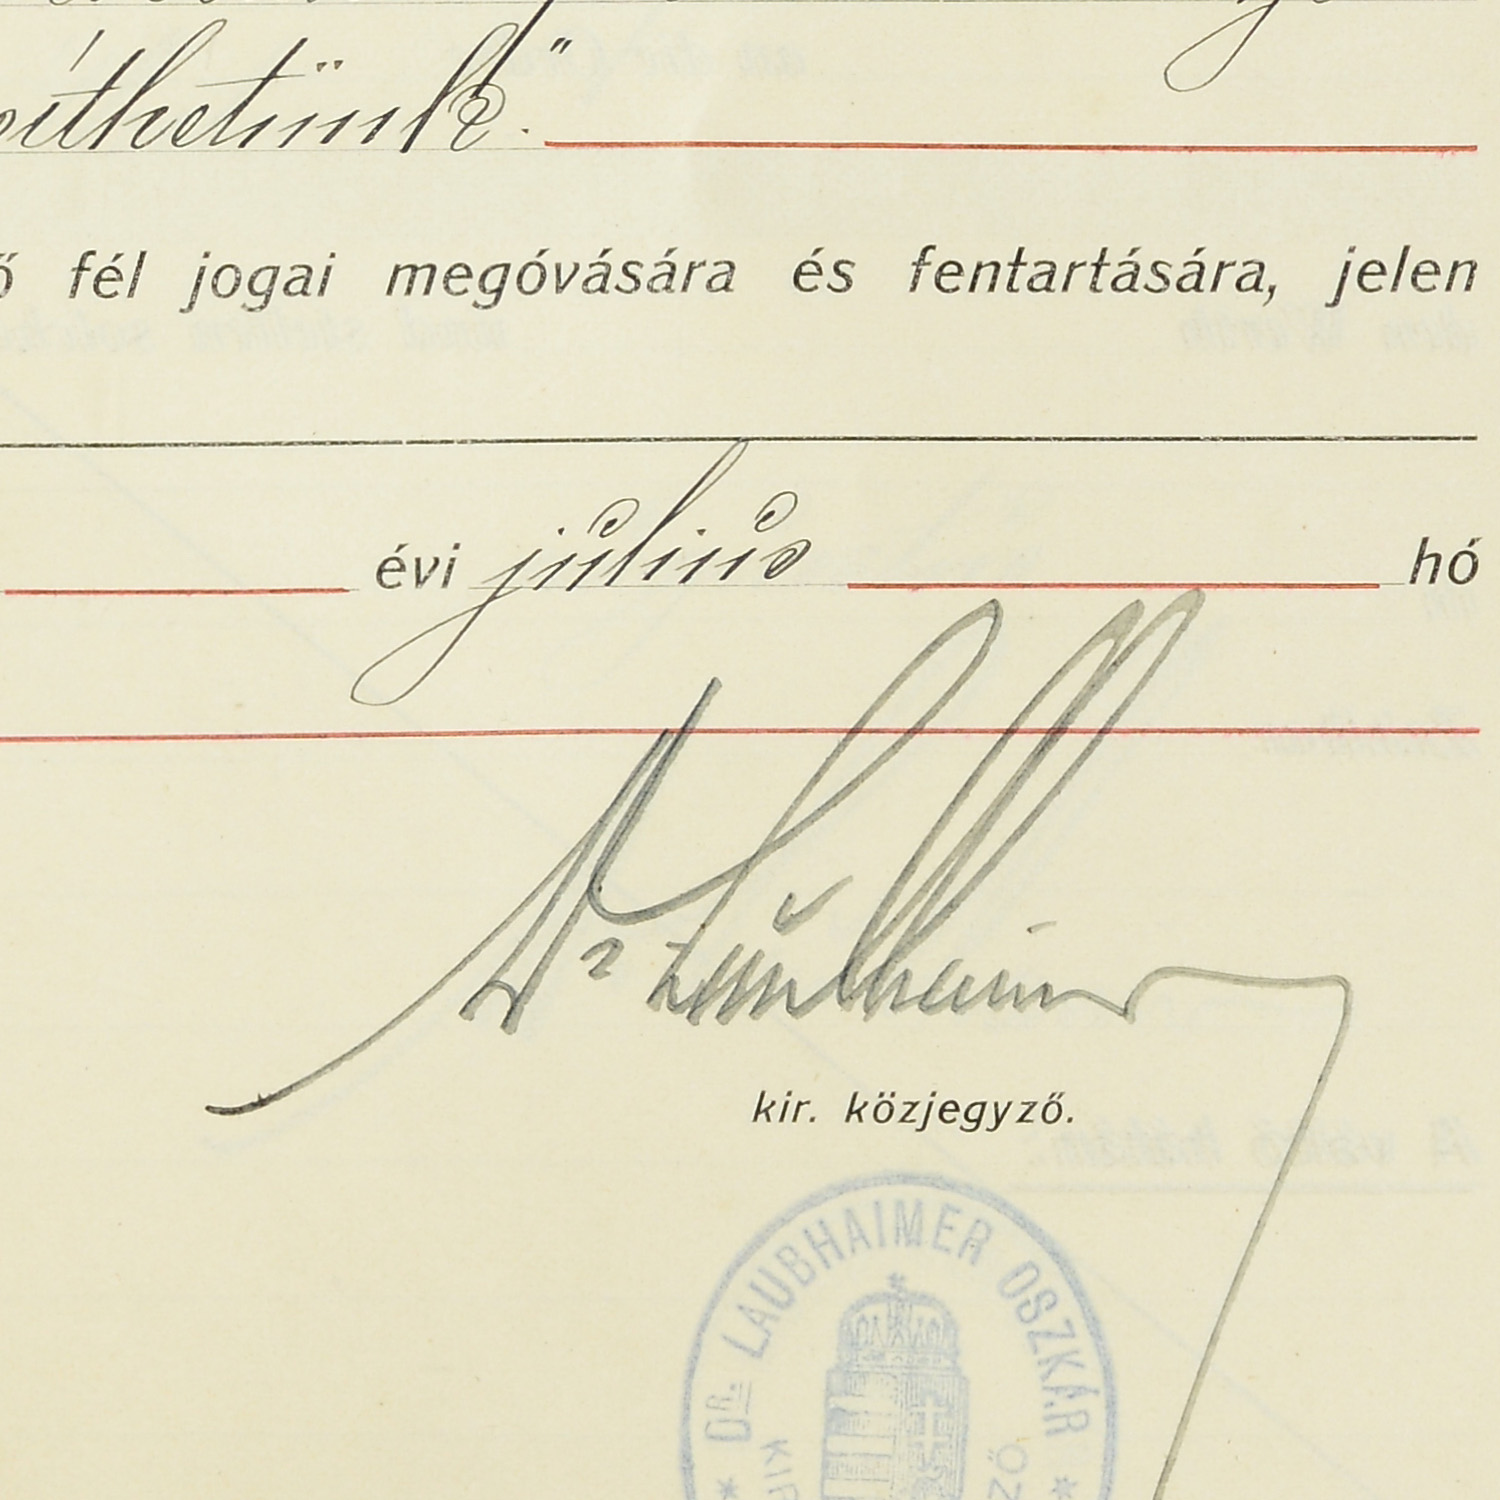 íthetünk."
ő fél jogai megóvására és fentartására, jelen
évi július hó
Dr Laubhaimer
kir. közjegyző.
* DR. LAUBHAIMER OSZKÁR *